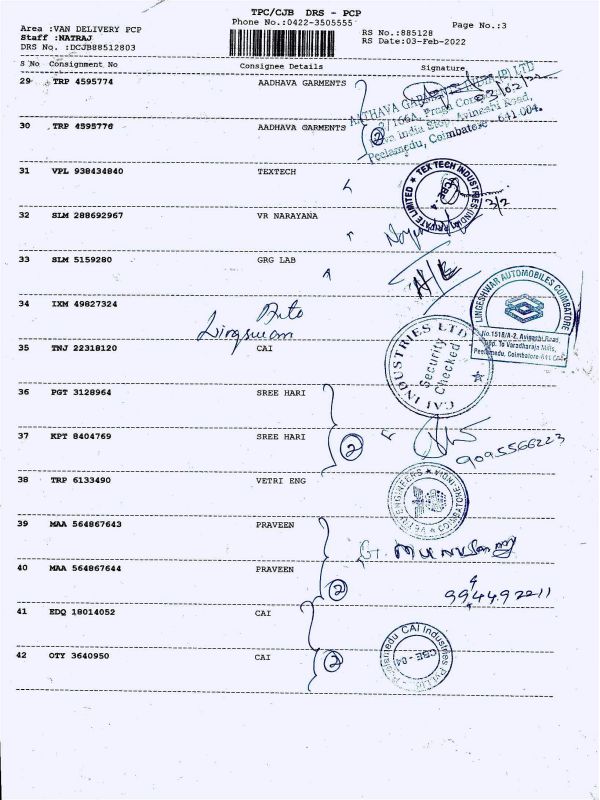 TPC/CJB DRS - PCP
Area :VAN DELIVERY PCP
Phone No.:0422-3505555
Page No.:3
Staff :NATRAJ
RS No.:885128
DRS No. :DCJB88512803
RS Date:03-Feb-2022
S No Consignment No Consignee Details Signature
29 TRP 4595774 AADHAVA GARMENTS
03/02/22
30 TRP 4595776 AADHAVA GARMENTS
2
Peelamedu, Coimbatore - 641 004.
31 VPL 938434840 TEXTECH
TEX TECH INDUSTRIES (INDIA) PRIVATE LIMITED
CBE - 4
3/2
32 SLM 288692967 VR NARAYANA
33 SLM 5159280 GRG LAB
LINGESHWAR AUTOMOBILES COIMBATORE
No.1518/A-2, Avinashi Road,
Opp. To Varadharaja Mills,
Peelamedu, Coimbatore-641 004
34 IXM 49827324
Auto
35 TNJ 22318120 CAI
CAI INDUSTRIES LTD
Security
Checked
36 PGT 3128964 SREE HARI
37 KPT 8404769 SREE HARI
2
9095566223
38 TRP 6133490 VETRI ENG
39 MAA 564867643 PRAVEEN
40 MAA 564867644 PRAVEEN
2
9944492211
41 EDQ 18014052 CAI
42 OTY 3640950 CAI
2
Peelamedu CAI Industries Pvt Ltd
CBE - 04